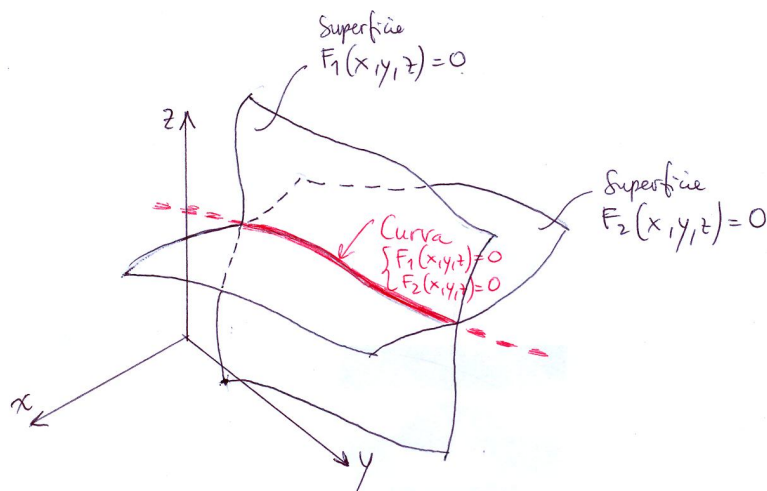 Superficie
F₁(x,y,z)=0
z
Superficie
F₂(x,y,z)=0
Curva
{F₁(x,y,z)=0
{F₂(x,y,z)=0
x
y